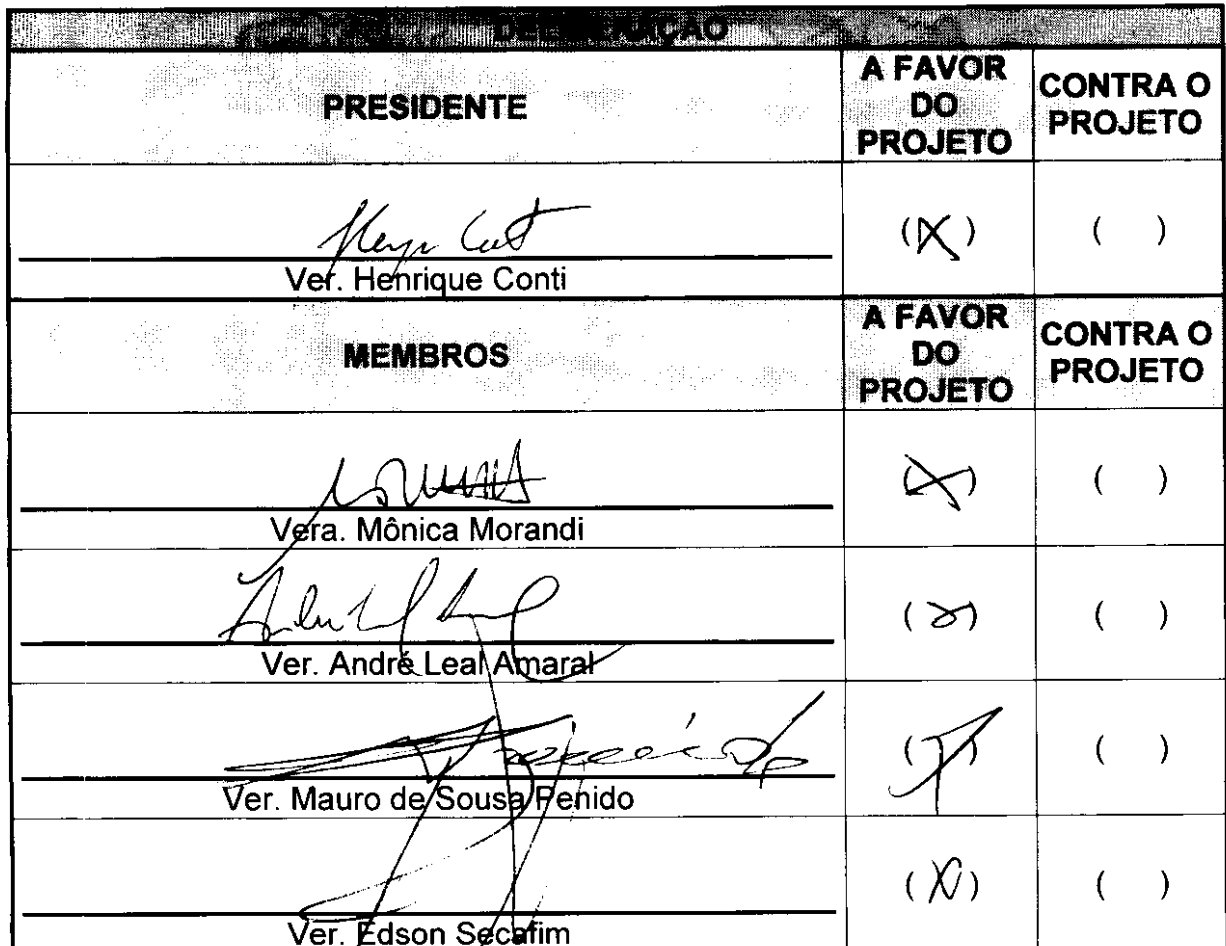 DELIBERAÇÃO
PRESIDENTE
A FAVOR DO PROJETO
CONTRA O PROJETO
Ver. Henrique Conti
(X)
( )
MEMBROS
A FAVOR DO PROJETO
CONTRA O PROJETO
Vera. Mônica Morandi
(X)
( )
Ver. André Leal Amaral
(X)
( )
Ver. Mauro de Sousa Penido
( )
Ver. Edson Secafim
(X)
( )